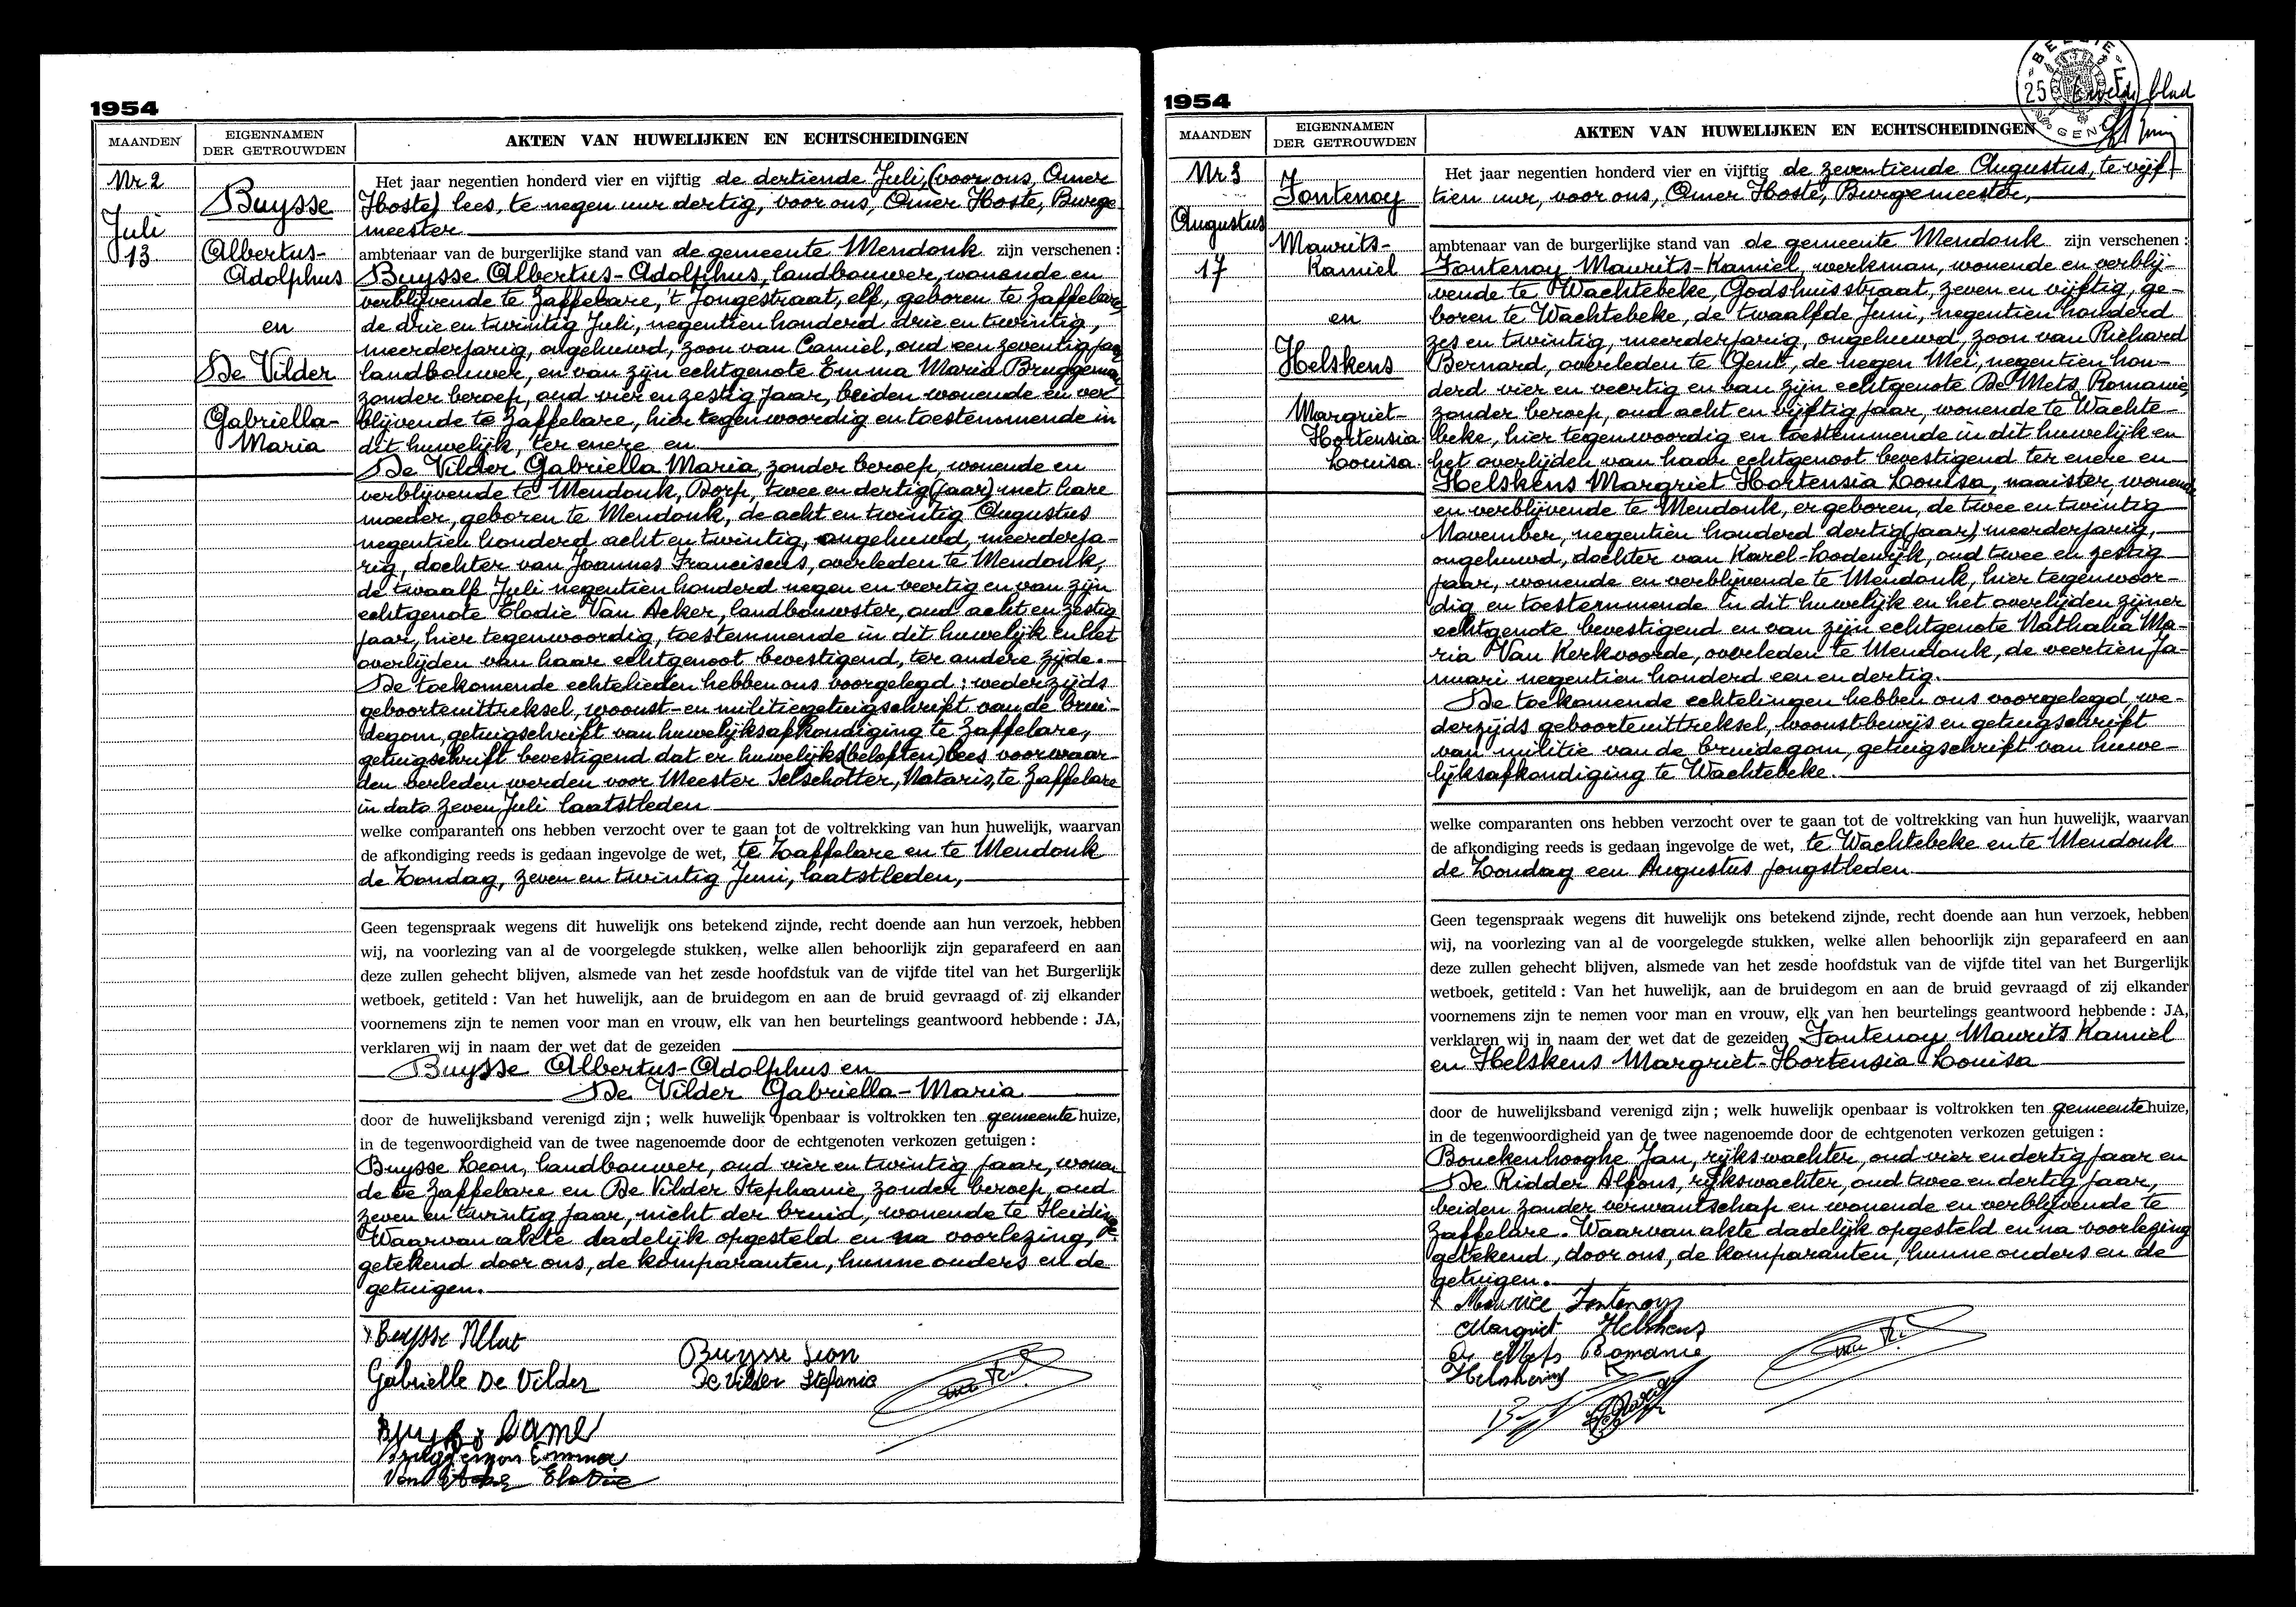 1954
MAANDEN
EIGENNAMEN
DER GETROUWDEN
AKTEN VAN HUWELIJKEN EN ECHTSCHEIDINGEN
Nr 2
Juli
13
Buysse
Albertus-
Adolphus
en
De Vilder
Gabriella-
Maria
Het jaar negentien honderd vier en vijftig de dertiende Juli, (voor ons, Omer
Hoste) lees, te negen uur dertig, voor ons, Omer Hoste, Burge-
meester
ambtenaar van de burgerlijke stand van de gemeente Mendonk zijn verschenen :
Buysse Albertus-Adolphus, landbouwer, wonende en
verblijvende te Zaffelare, 't Jongestraat, elf, geboren te Zaffelare
de drie en twintig Juli, negentien honderd drie en twintig,
meerderjarig, ongehuwd, zoon van Camiel, oud een zeventig jaar
landbouwer, en van zijn echtgenote Emma Maria Bruggeman
zonder beroep, oud vier en zestig jaar, beiden wonende en ver
blijvende te Zaffelare, hier tegenwoordig en toestemmende in
dit huwelijk, ter enere en
De Vilder Gabriella Maria, zonder beroep, wonende en
verblijvende te Mendonk, Dorp, twee en dertig (jaar) met hare
moeder, geboren te Mendonk, de acht en twintig Augustus
negentien honderd acht en twintig, ongehuwd, meerderja-
rig, dochter van Joannes Franciscus, overleden te Mendonk,
de twaalf Juli negentien honderd negen en veertig en van zijn
echtgenote Elodie Van Acker, landbouwster, oud acht en zestig
jaar, hier tegenwoordig, toestemmende in dit huwelijk en het
overlijden van haar echtgenoot bevestigend, ter andere zijde.
De toekomende echtelieden hebben ons voorgelegd : wederzijds
geboorteuittreksel, woonst- en militiegetuigschrift van de brui-
degom, getuigschrift van huwelijksafkondiging te Zaffelare,
getuigschrift bevestigend dat er huwelijks(beloften) lees voorwaar-
den verleden werden voor Meester Selschotter, Notaris, te Zaffelare
in dato zeven Juli laatstleden
welke comparanten ons hebben verzocht over te gaan tot de voltrekking van hun huwelijk, waarvan
de afkondiging reeds is gedaan ingevolge de wet, te Zaffelare en te Mendonk
de Zondag, zeven en twintig Juni, laatstleden,
Geen tegenspraak wegens dit huwelijk ons betekend zijnde, recht doende aan hun verzoek, hebben
wij, na voorlezing van al de voorgelegde stukken, welke allen behoorlijk zijn geparafeerd en aan
deze zullen gehecht blijven, alsmede van het zesde hoofdstuk van de vijfde titel van het Burgerlijk
wetboek, getiteld : Van het huwelijk, aan de bruidegom en aan de bruid gevraagd of zij elkander
voornemens zijn te nemen voor man en vrouw, elk van hen beurtelings geantwoord hebbende : JA,
verklaren wij in naam der wet dat de gezeiden
Buysse Albertus-Adolphus en
De Vilder Gabriella-Maria
door de huwelijksband verenigd zijn ; welk huwelijk openbaar is voltrokken ten gemeentehuize,
in de tegenwoordigheid van de twee nagenoemde door de echtgenoten verkozen getuigen :
Buysse Leon, landbouwer, oud vier en twintig jaar, wonen-
de te Zaffelare en De Vilder Stephanie, zonder beroep, oud
zeven en twintig jaar, nicht der bruid, wonende te Sleidinge
Waarvan akte dadelijk opgesteld en na voorlezing,
getekend door ons, de komparanten, hunne ouders en de
getuigen.
Buysse Albert
Gabrielle De Vilder
Buysse Leon
De Vilder Stefanie
Bruggeman Emma
Van Acker Elodie
1954
MAANDEN
EIGENNAMEN
DER GETROUWDEN
AKTEN VAN HUWELIJKEN EN ECHTSCHEIDINGEN
BELGIE
25 F
GENT
blad
Nr 3
Augustus
17
Fontenoy
Maurits-
Kamiel
en
Helskens
Margriet-
Hortensia
Louisa
Het jaar negentien honderd vier en vijftig de zeventiende Augustus, te vijf
tien uur, voor ons, Omer Hoste, Burgemeester,
ambtenaar van de burgerlijke stand van de gemeente Mendonk zijn verschenen :
Fontenoy Maurits-Kamiel, werkman, wonende en verblij-
vende te Wachtebeke, Godshuisstraat, zeven en vijftig, ge-
boren te Wachtebeke, de twaalfde Juni, negentien honderd
zes en twintig, meerderjarig, ongehuwd, zoon van Richard
Bernard, overleden te Gent, de negen Mei, negentien hon-
derd vier en veertig en van zijn echtgenote De Mets, Romanie,
zonder beroep, oud acht en vijftig jaar, wonende te Wachte-
beke, hier tegenwoordig en toestemmende in dit huwelijk en
het overlijden van haar echtgenoot bevestigend ter enere en
Helskens Margriet Hortensia Louisa, naaister, wonende
en verblijvende te Mendonk, er geboren, de twee en twintig
November, negentien honderd dertig (jaar) meerderjarig,
ongehuwd, dochter van Karel-Lodewijk, oud twee en zestig
jaar, wonende en verblijvende te Mendonk, hier tegenwoor-
dig en toestemmende in dit huwelijk en het overlijden zijner
echtgenote bevestigend en van zijn echtgenote Nathalia Ma-
ria Van Kerkvoorde, overleden te Mendonk, de veertien Ja-
nuari negentien honderd een en dertig.
De toekomende echtelingen hebben ons voorgelegd, we-
derzijds geboorteuittreksel, woonstbewijs en getuigschrift
van militie van de bruidegom, getuigschrift van huwe-
lijksafkondiging te Wachtebeke.
welke comparanten ons hebben verzocht over te gaan tot de voltrekking van hun huwelijk, waarvan
de afkondiging reeds is gedaan ingevolge de wet, te Wachtebeke en te Mendonk
de Zondag een Augustus jongstleden
Geen tegenspraak wegens dit huwelijk ons betekend zijnde, recht doende aan hun verzoek, hebben
wij, na voorlezing van al de voorgelegde stukken, welke allen behoorlijk zijn geparafeerd en aan
deze zullen gehecht blijven, alsmede van het zesde hoofdstuk van de vijfde titel van het Burgerlijk
wetboek, getiteld : Van het huwelijk, aan de bruidegom en aan de bruid gevraagd of zij elkander
voornemens zijn te nemen voor man en vrouw, elk van hen beurtelings geantwoord hebbende : JA,
verklaren wij in naam der wet dat de gezeiden Fontenoy Maurits Kamiel
en Helskens Margriet-Hortensia Louisa
door de huwelijksband verenigd zijn ; welk huwelijk openbaar is voltrokken ten gemeentehuize,
in de tegenwoordigheid van de twee nagenoemde door de echtgenoten verkozen getuigen :
Bouckenhooghe Jan, rijkswachter, oud vier en dertig jaar en
De Ridder Alfons, rijkswachter, oud twee en dertig jaar,
beiden zonder verwantschap en wonende en verblijvende te
Zaffelare. Waarvan akte dadelijk opgesteld en na voorlezing
getekend, door ons, de komparanten, hunne ouders en de
getuigen.
Maurice Fontenoy
Margriet Helskens
De Mets Romanie
Helskens K